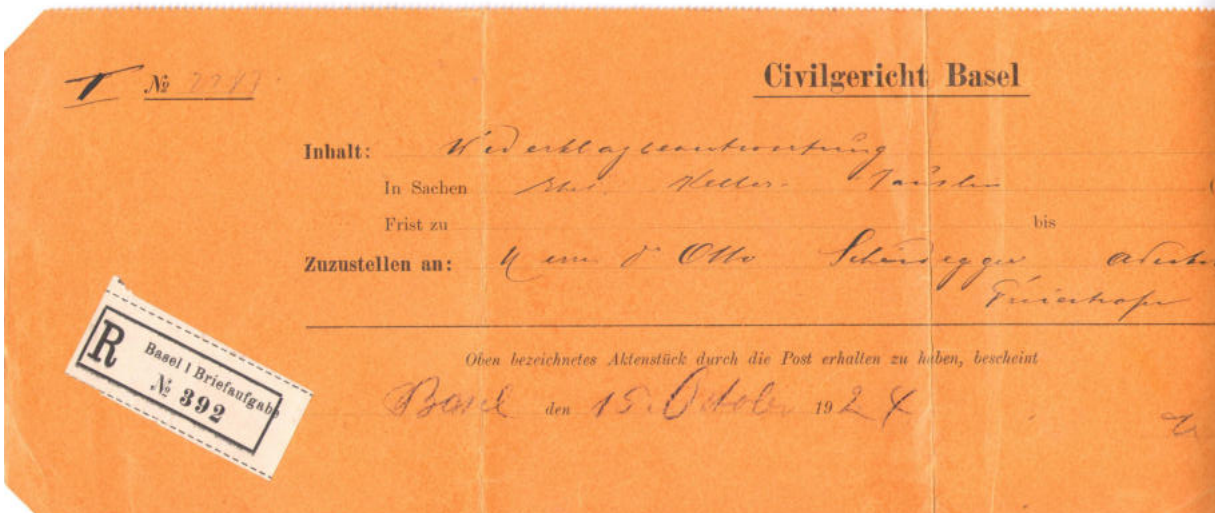 Civilgericht Basel
№
Inhalt: Widerklagbeantwortung
In Sachen Keller
Frist zu bis
Zuzustellen an: Herrn Dr Otto Scheidegger
Oben bezeichnetes Aktenstück durch die Post erhalten zu haben, bescheint
Basel den 15. October 1924
R
Basel 1 Briefaufgabe
№ 392